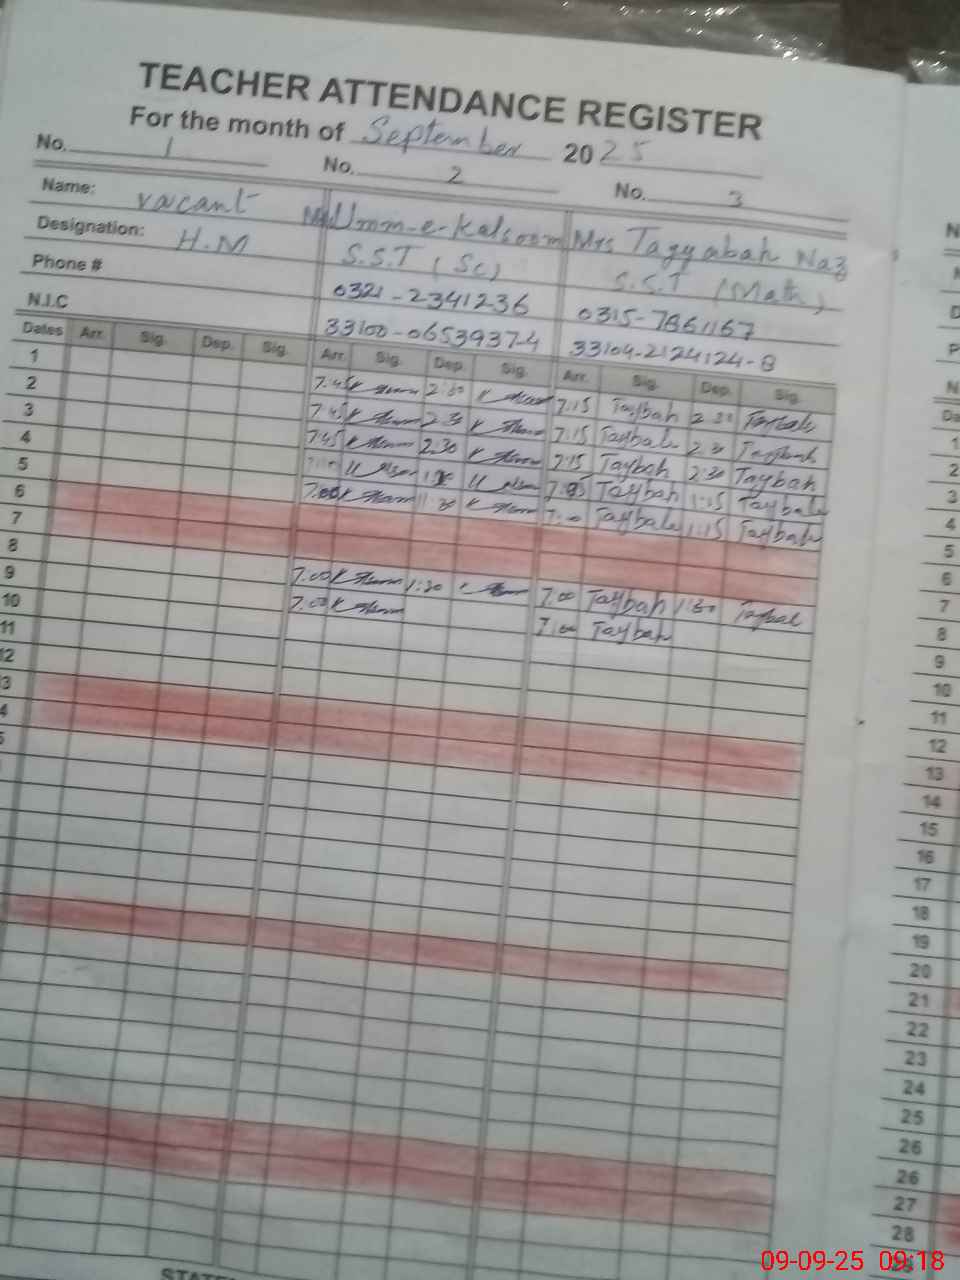 TEACHER ATTENDANCE REGISTER
For the month of September 2025
No. 1 No. 2 No. 3
Name: vacant Umm-e-Kalsoom Mrs Tayyabah Naz
Designation: H.M S.S.T (Sc) S.S.T (Math)
Phone # 0321-2341236 0315-7861167
N.I.C 33100-0653937-4 33104-2124124-8
Dates Arr. Sig. Dep. Sig. Arr. Sig. Dep. Sig. Arr. Sig. Dep. Sig.
1 7:45 2:30 7:15 Taybah 2:30 Taybah
2 7:45 2:30 7:15 Taybah 2:30 Taybah
3 7:45 2:30 7:15 Taybah 2:30 Taybah
4 Taybah 1:15 Taybah
5 7:00 11:30 Taybah 1:15 Taybah
6
7
8 7:00 1:30 7:00 Taybah 1:30 Taybah
9 7:00 7:00 Taybah
10
11
12
3
4
5
N
D
P
N
Da
1
2
3
4
5
6
7
8
9
10
11
12
13
14
15
16
17
18
19
20
21
22
23
24
25
26
26
27
28
09-09-25 09:18